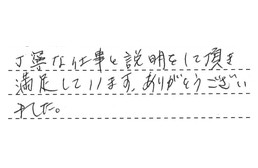 丁寧な仕事と説明をして頂き
満足しています。ありがとうござい
ました。